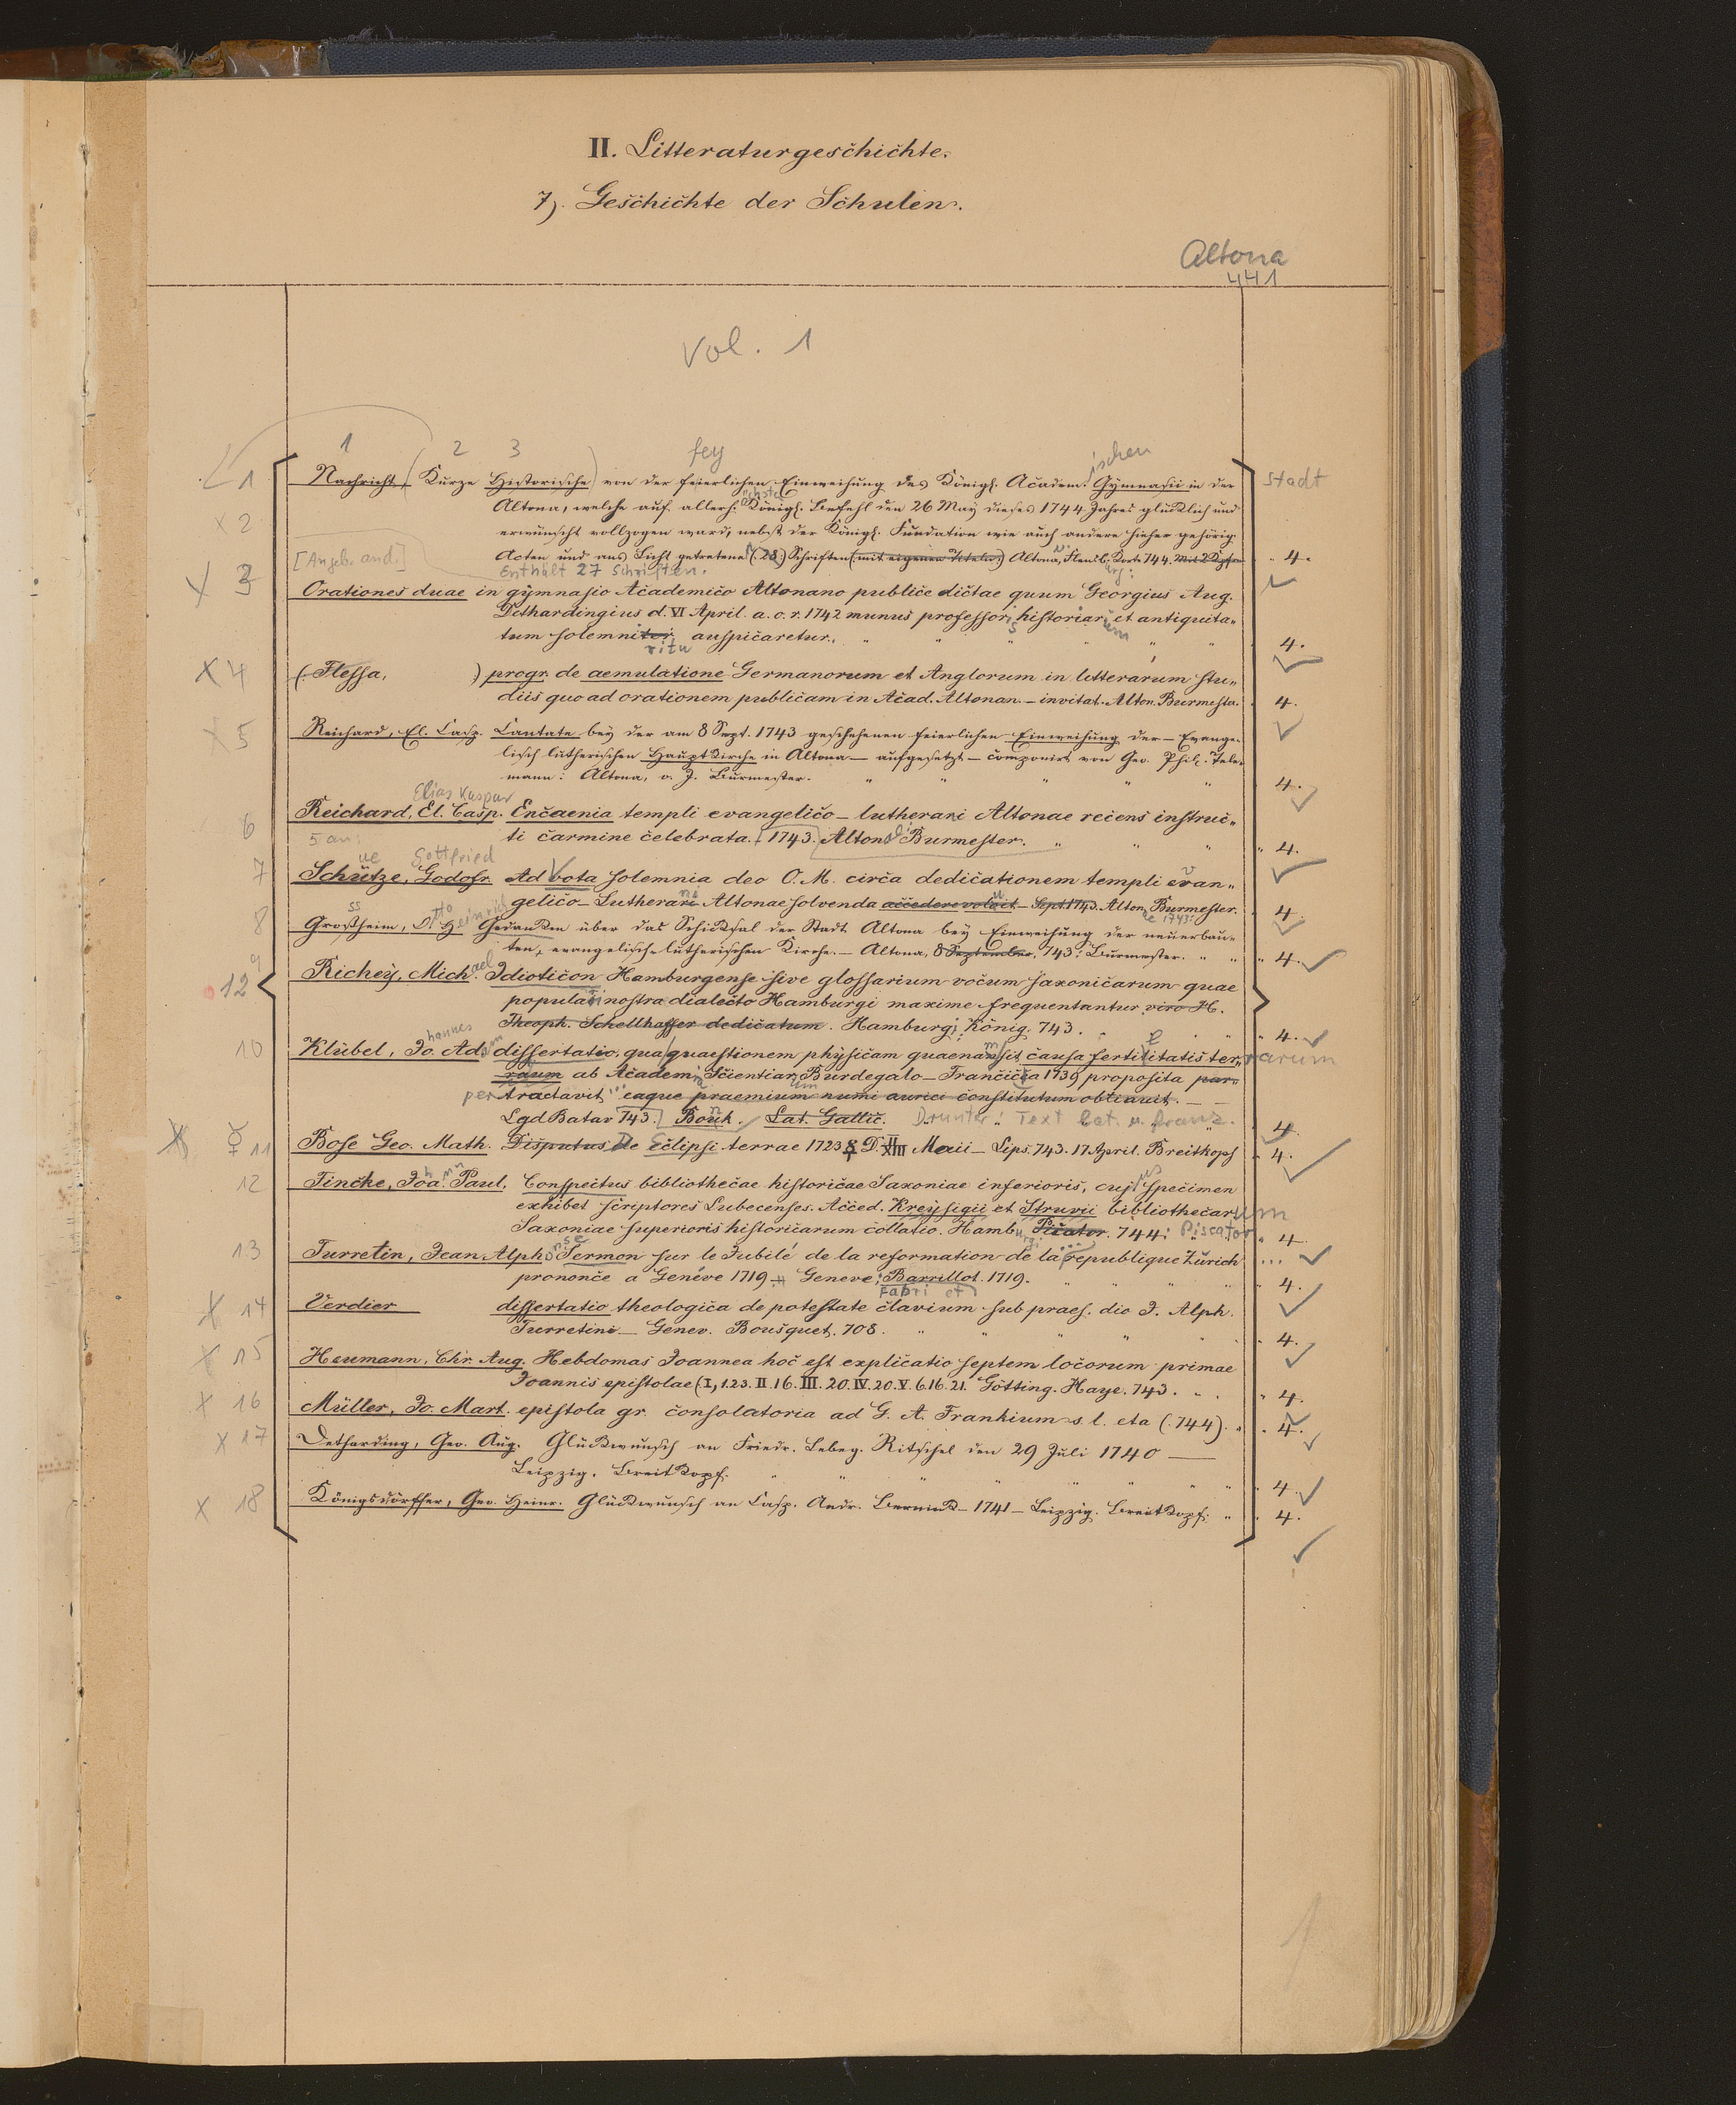 II. Litteraturgeschichte.
7). Geschichte der Schulen.
Altona
441
Vol. 1
1 2 3 fey ischen
1 Nachricht, (Kurze Historische) von der feierlichen Einweihung des Königl. Academ. Gymnasii in der Stadt
2 Altona, welche auf allerh. Königl. Befehl den 26 May dieses 1744 Jahres glücklich und
erwünscht vollzogen ward, nebst der Königl. Fundation wie auch andere hieher gehörig.
[Angeb. and.] Acten und ans Licht getretene (28.) Schriften (mit eigenen Titeln.) Altona, Flensb. Korte 744. 4.
Enthält 27 Schriften.
X 3 Orationes duae in gymnasio Academico Altonano publice dictae quum Georgius Aug.
Dethardingius d. VI April. a. o. r. 1742 munus professoris historiar. et antiquita„
tum solemniter auspicaretur. " " " " " 4.
ritu
X 4 (Flessa, ) progr. de aemulatione Germanorum et Anglorum in litterarum stu„
diis quo ad orationem publicam in Acad. Altonan. – invitat. Alton. Burmester. 4.
X 5 Reichard, El. Casp. Cantate bey der am 8 Sept. 1743 geschehenen feierlichen Einweihung der – Evange„
lisch lutherischen Hauptkirche in Altona – aufgesetzt – componirt von Geo. Phil. Tele„
mann: Altona, o. J. Burmester. " " " " 4.
Elias Kaspar
6 Reichard, El. Casp. Encaenia templi evangelico – lutherani Altonae recens instruc„
5 an. ti carmine celebrata. (1743.) Alton. Burmester. " " " 4.
ue Gottfried
7 Schütze, Godofr. Ad Vota solemnia deo O. M. circa dedicationem templi evan„
gelico – Lutherani Altonae solvenda accedere voluit – Sept. 1743. Alton. Burmester. 4.
ae 1743:
8 Großheim, O. H. Gedanken über das Schicksal der Stadt Altona bey Einweihung der neuerbau„
ss tto Heinrich
ten, evangelisch-lutherischen Kirche. – Altona, 8 September. 743. Burmester. " " " 4.
9
12 Richey, Michael Idioticon Hamburgense sive glossarium vocum saxonicarum quae
populari nostra dialecto Hamburgi maxime frequentantur viro H.
Theoph. Schellhaffer dedicatum. Hamburgi, König. 743. " " 4.
10 Klübel, Jo. Ad. dissertatio, qua quaestionem physicam quaenam sit causa fertilitatis ter„ rarum
hannes am
rarum ab Academia Scientiarum Burdegalo – Francica 1739 proposita per„
pertractavit ... eaque praemium numi aurici constitutum obtinuit. – –
Lgd Batav 743. Bouk. Lat. Gallic. Drunter: Text lat. u. franz. 4.
11 Bose Geo. Math. Disputus De Eclipsi terrae 1723 D. XIII Maii – Lips. 743. 17 April. Breitkopf 4.
12 Fincke, Joa. Paul. Conspectus bibliothecae historicae Saxoniae inferioris, cujus specimen
exhibet scriptores Lubecenses. Acced. Kreysigii et Struvii bibliothecarum
Saxoniae superioris historicarum collatio. Hamburgi Picator. 744: Piscator 4.
13 Turretin, Jean Alphonse Sermon sur le Jubilé de la reformation de la republique Zürich ...
prononcé a Genéve 1719 – Geneve, Barrillot. 1719. " " " " 4.
Fabri et
X 14 Verdier dissertatio theologica de potestate clavium sub praes. dio J. Alph.
Turretini – Genev. Bousquet. 708. " " " " " 4.
X 15 Heumann, Chr. Aug. Hebdomas Joannea hoc est explicatio septem locorum primae
Joannis epistolae (I, 1.23. II. 16. III. 20. IV. 20. V. 6. 16. 21. Götting. Haye. 743. " " " 4.
X 16 Müller, Jo. Mart. epistola gr. consolatoria ad G. A. Frankium s. l. eta (.744). " 4.
X 17 Detharding, Geo. Aug. Glückwunsch an Friedr. Lebeg. Ritschel den 29 Juli 1740 –
Leipzig. Breitkopf. " " " " " " " 4.
X 18 Königsdörffer, Geo. Heinr. Glückwunsch an Casp. Andr. – 1741 – Leipzig. Breitkopf. " 4.
1